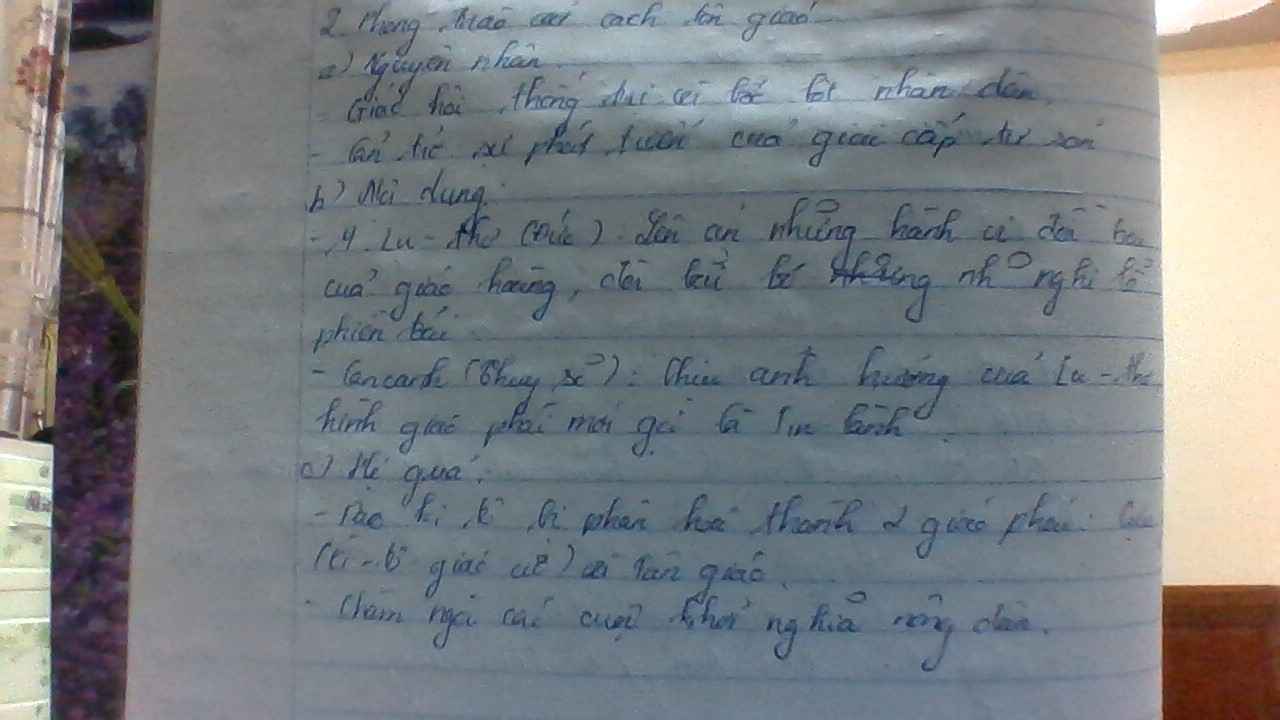 2. Phong trào cải cách tôn giáo
a) Nguyên nhân.
- Giáo hội thống trị bóc lột nhân dân.
- Cản trở sự phát triển của giai cấp tư sản
b) Nội dung:
- M. Lu-thơ (Đức). Lên án những hành vi đồi bại
của giáo hoàng, đòi bãi bỏ nghi lễ
phiền toái
- Cancanh (Thụy sĩ): Chịu ảnh hưởng của Lu-thơ
hình giáo phái mới gọi là Tin lành.
c) Hệ quả:
- Đạo ki tô bị phân hoá thành 2 giáo phái:
(Ki-tô giáo cũ) và Tân giáo.
- Châm ngòi các cuộc khởi nghĩa nông dân.